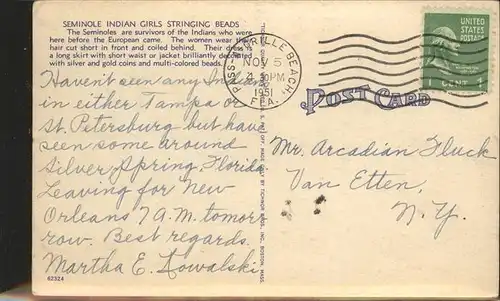 SEMINOLE INDIAN GIRLS STRINGING BEADS
The Seminoles are survivors of the Indians who were
here before the European came. The women wear their
hair cut short in front and coiled behind. Their dress is
a long skirt with short waist or jacket brilliantly decorated
with silver and gold coins and multi-colored beads.
Haven't seen any Indians
in either Tampa or
St. Petersburg but have
seen some around
Silver Spring, Florida
Leaving for New
Orleans 7 A.M. tomor-
row. Best regards.
Martha E. Kowalski
62324
BROS., INC., BOSTON, MASS.
PASS-A-GRILLE BEACH
NOV 5
PM
1951
FLA.
POST CARD
UNITED
STATES
POSTAGE
1 CENT 1
Mr. Arcadian Fluck
Van Etten,
N.Y.